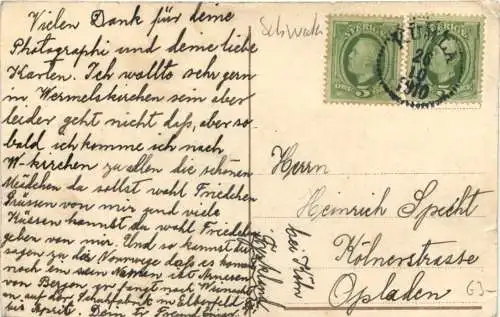 Vielen Dank für deine
Photographi und deine liebe
Karten. Ich wollto sehr gern
in Wermelskirchen sein aber
leider geht nicht daß, aber so
bald ich komme ich nach
W.kirchen zu allen die schönen
Mädchen da sollst wohl Friedchen
Grüssen von mir und viele
Küssen kannst du wohl Friedchen
geben von mir. Und so kannst du
sagen zu das Norwege daß es kommt
noch ein
von Bergen er fangt nach
an auf der Schafabrik in Elberfeld
bis April. Dein
Schweden
SVERIGE
SVERIGE
5 ÖRE
ÖRE 5
26
10
1910
Herrn
Heinrich Specht
Kölnerstrasse
Opladen
bei Köln
63-